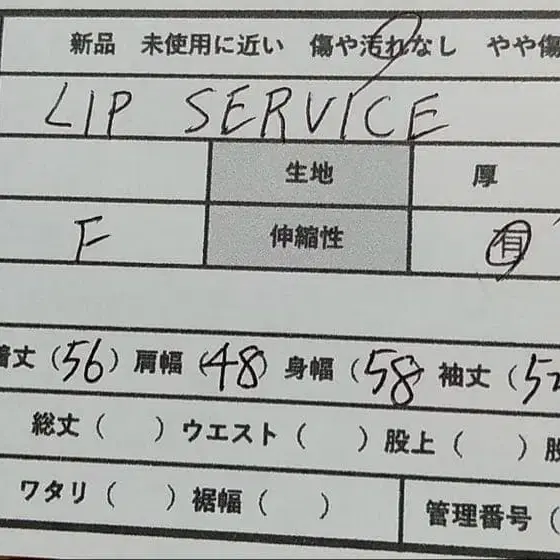 新品 未使用に近い 傷や汚れなし やや傷
LIP SERVICE
生地 厚
F 伸縮性 有
着丈 (56) 肩幅 (48) 身幅 (58) 袖丈 (5
総丈 ( ) ウエスト ( ) 股上 ( ) 股
ワタリ ( ) 裾幅 ( ) 管理番号 (